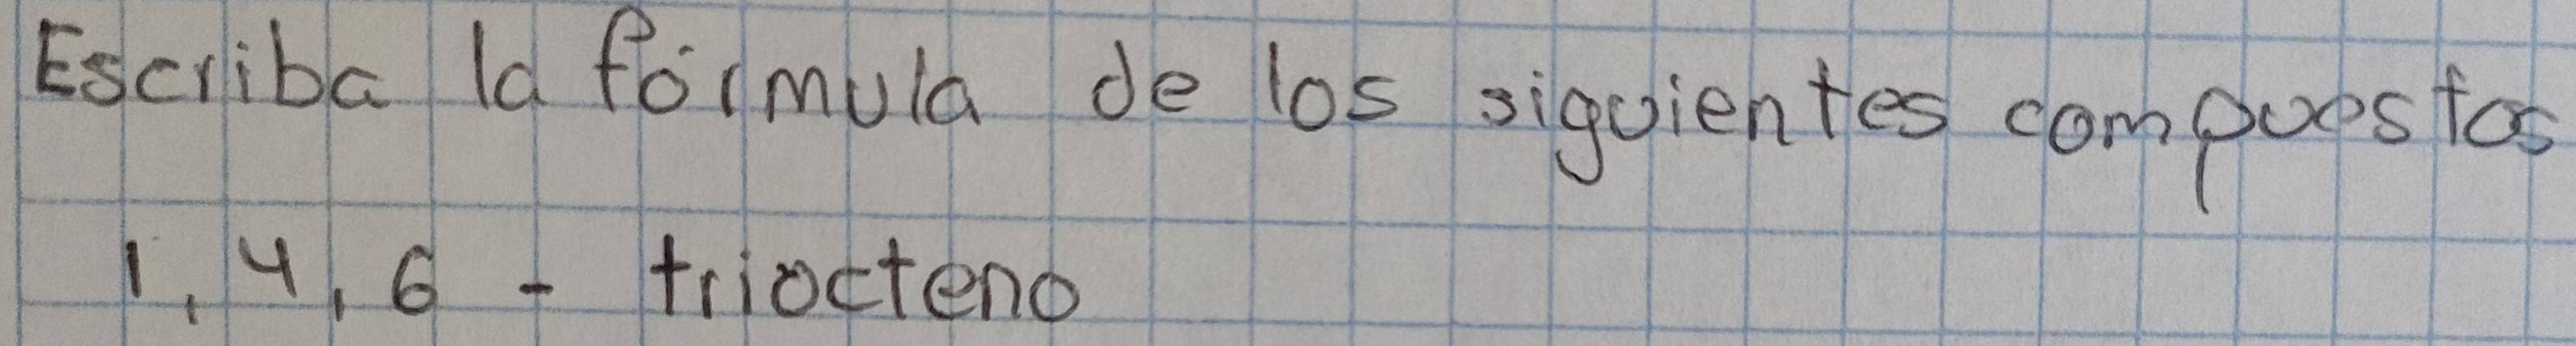 Escriba la fórmula de los siguientes compuestos
1,4,6 - triocteno